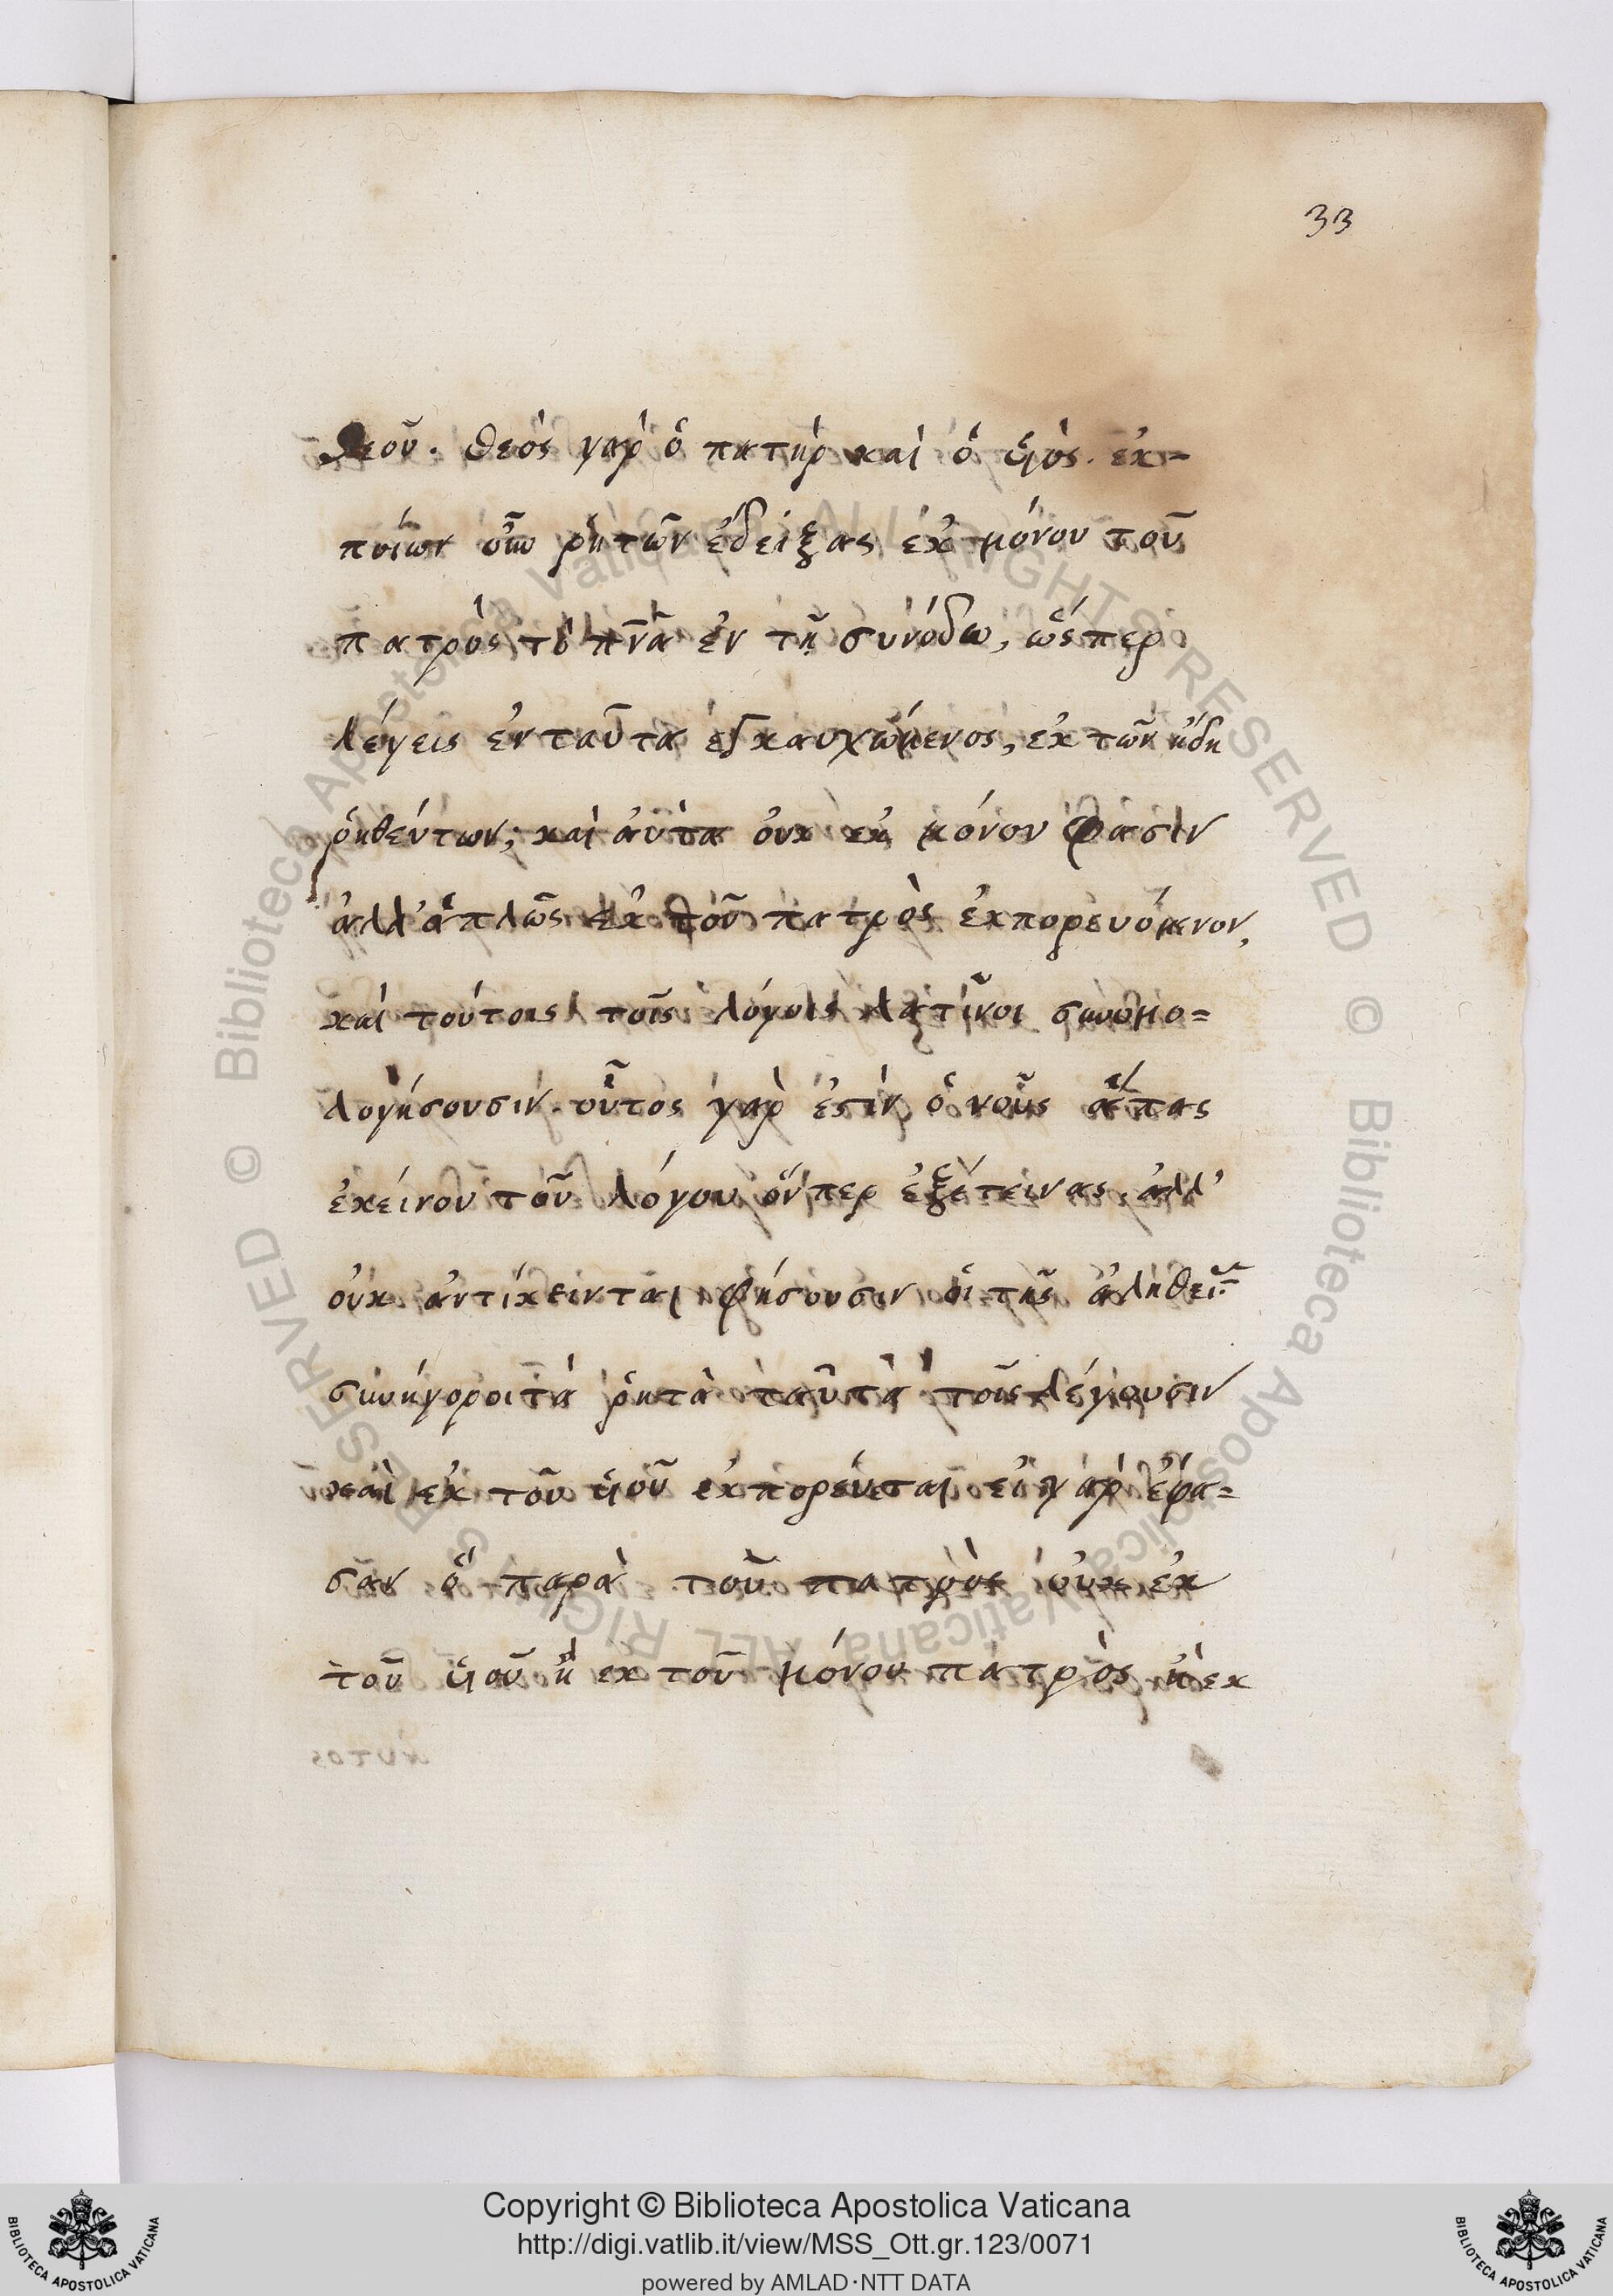 33
θεοῦ. θεὸς γὰρ ὁ πατὴρ καὶ ὁ ὑιὸς. ἐκ-
ποίων οὖν ῥητῶν ἐδείξας ἐκ μόνου τοῦ
πατρὸς τὸ πνᾶ ἐν τῇ συνόδω, ὥσπερ
λέγεις ἐνταῦτα ἐγκαυχώμενος, ἐκ τῶν ἤδη
ῥηθέντων; καὶ ἀυτὰ ὀυκ ἐκ μόνου φασὶν
ἀλλ' ἁπλῶς ἐκ τοῦ πατρὸς ἐκπορευόμενον,
καὶ τούτοις τοῖς λόγοις λατῖνοι συνομο=
λογήσουσιν. οὗτος γὰρ ἐστὶν ὁ νοῦς ἅπας
ἐκείνου τοῦ λόγου ὅνπερ ἐξέτεινας. ἀλλ'
ὀυκ ἀντίκεινται φήσουσιν ὁι τῆς ἀληθείας
συνήγοροι τὰ ῥητὰ ταῦτα τοῖς λέγουσιν
καὶ ἐκ τοῦ ὑιοῦ ἐκπορεύεται, ἐι γὰρ ἔφα=
σαν ὅ παρὰ τοῦ πατρὸς ὀυκ ἐκ
τοῦ ὑιοῦ ἢ ἐκ τοῦ μόνου πατρὸς ἢ ἐκ
Copyright © Biblioteca Apostolica Vaticana
http://digi.vatlib.it/view/MSS_Ott.gr.123/0071
powered by AMLAD·NTT DATA
BIBLIOTECA APOSTOLICA VATICANA
BIBLIOTECA APOSTOLICA VATICANA
© Biblioteca Apostolica Vaticana ALL RIGHTS RESERVED © Biblioteca Apostolica Vaticana ALL RIGHTS RESERVED